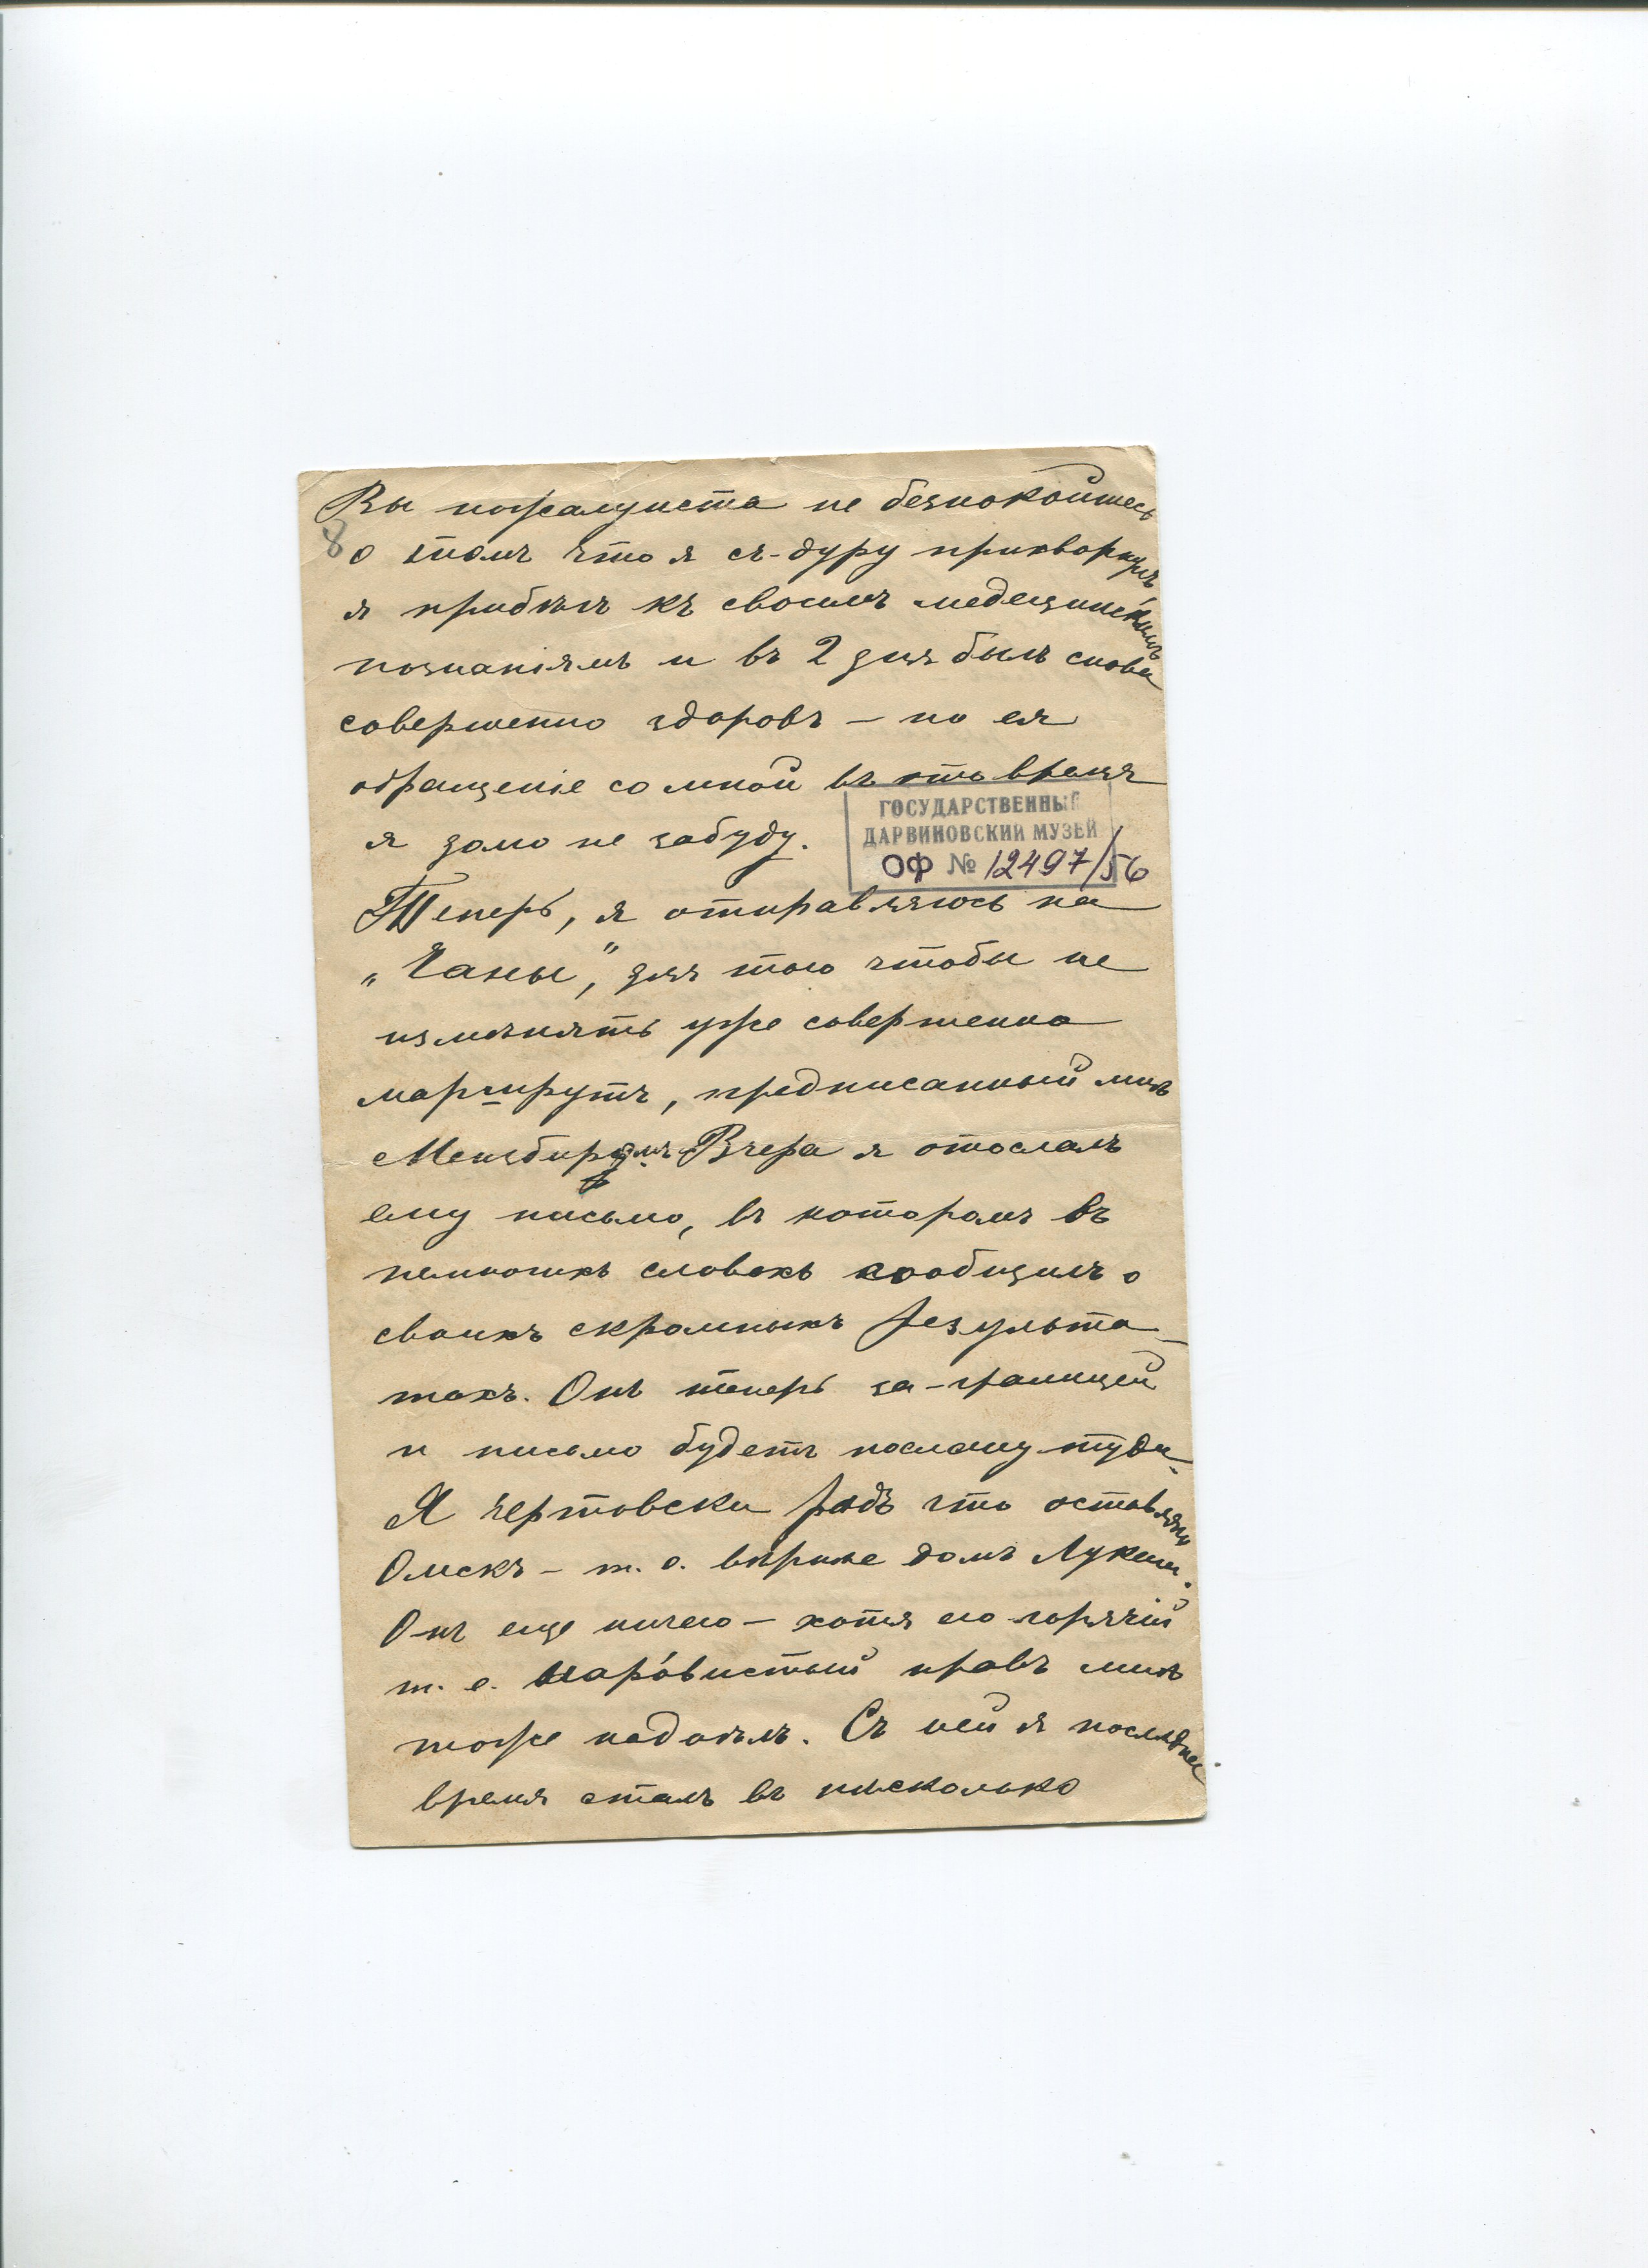 Вы пожалуиста не безпокойтесь
8
о томъ что я съ-дуру прихворнулъ
я прибѣгъ къ своимъ медецинскимъ
познаніямъ и въ 2 дня былъ снова
совершенно здоровъ – но ея
обращеніе со мной въ это время
я долго не забуду.
ГОСУДАРСТВЕННЫЙ
ДАРВИНОВСКИЙ МУЗЕЙ
ОФ № 12497/56
Теперь, я отправляюсь на
„Чаны", для того чтобы не
измѣнять уже совершенно
маршрутъ, предписанный мнѣ
Мензбиромъ. Вчера я отослалъ
ему письмо, въ которомъ въ
немногихъ словахъ сообщилъ о
своихъ скромныхъ результа-
тахъ. Онъ теперь за-границей
и письмо будетъ послану туда.
Я чертовски радъ что оставляю
Омскъ – т. е. вѣрнѣе домъ
Онъ еще ничего – хотя его горячій
т. е. наро́вистый нравъ мнѣ
тоже надоѣлъ. Съ ней я последнеи
время сталъ въ нѣсколько